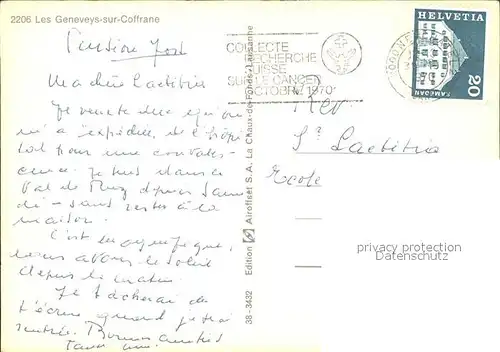 2206 Les Geneveys-sur-Coffrane
Pension
COLLECTE
RECHERCHE
SUISSE
SUR LE CANCER
OCTOBRE 1970
HELVETIA
20
Ma chère Laetitia
Je veux te dire qu'on
m'a expédiée de l'hôpi
tal pour une convales-
cence. Je suis dans le
Val de Ruz depuis same
di - sans rester à la
maison.
C'est magnifique,
nous avons le soleil
depuis le matin.
Je tâcherai de
t'écrire quand je serai
rentrée. Bonnes amitiés
Edition Airoffset S. A. La Chaux-de-Fonds/Lausanne
38-3432
Rev
Sr Laetitia
Ecole
privacy protection
Datenschutz